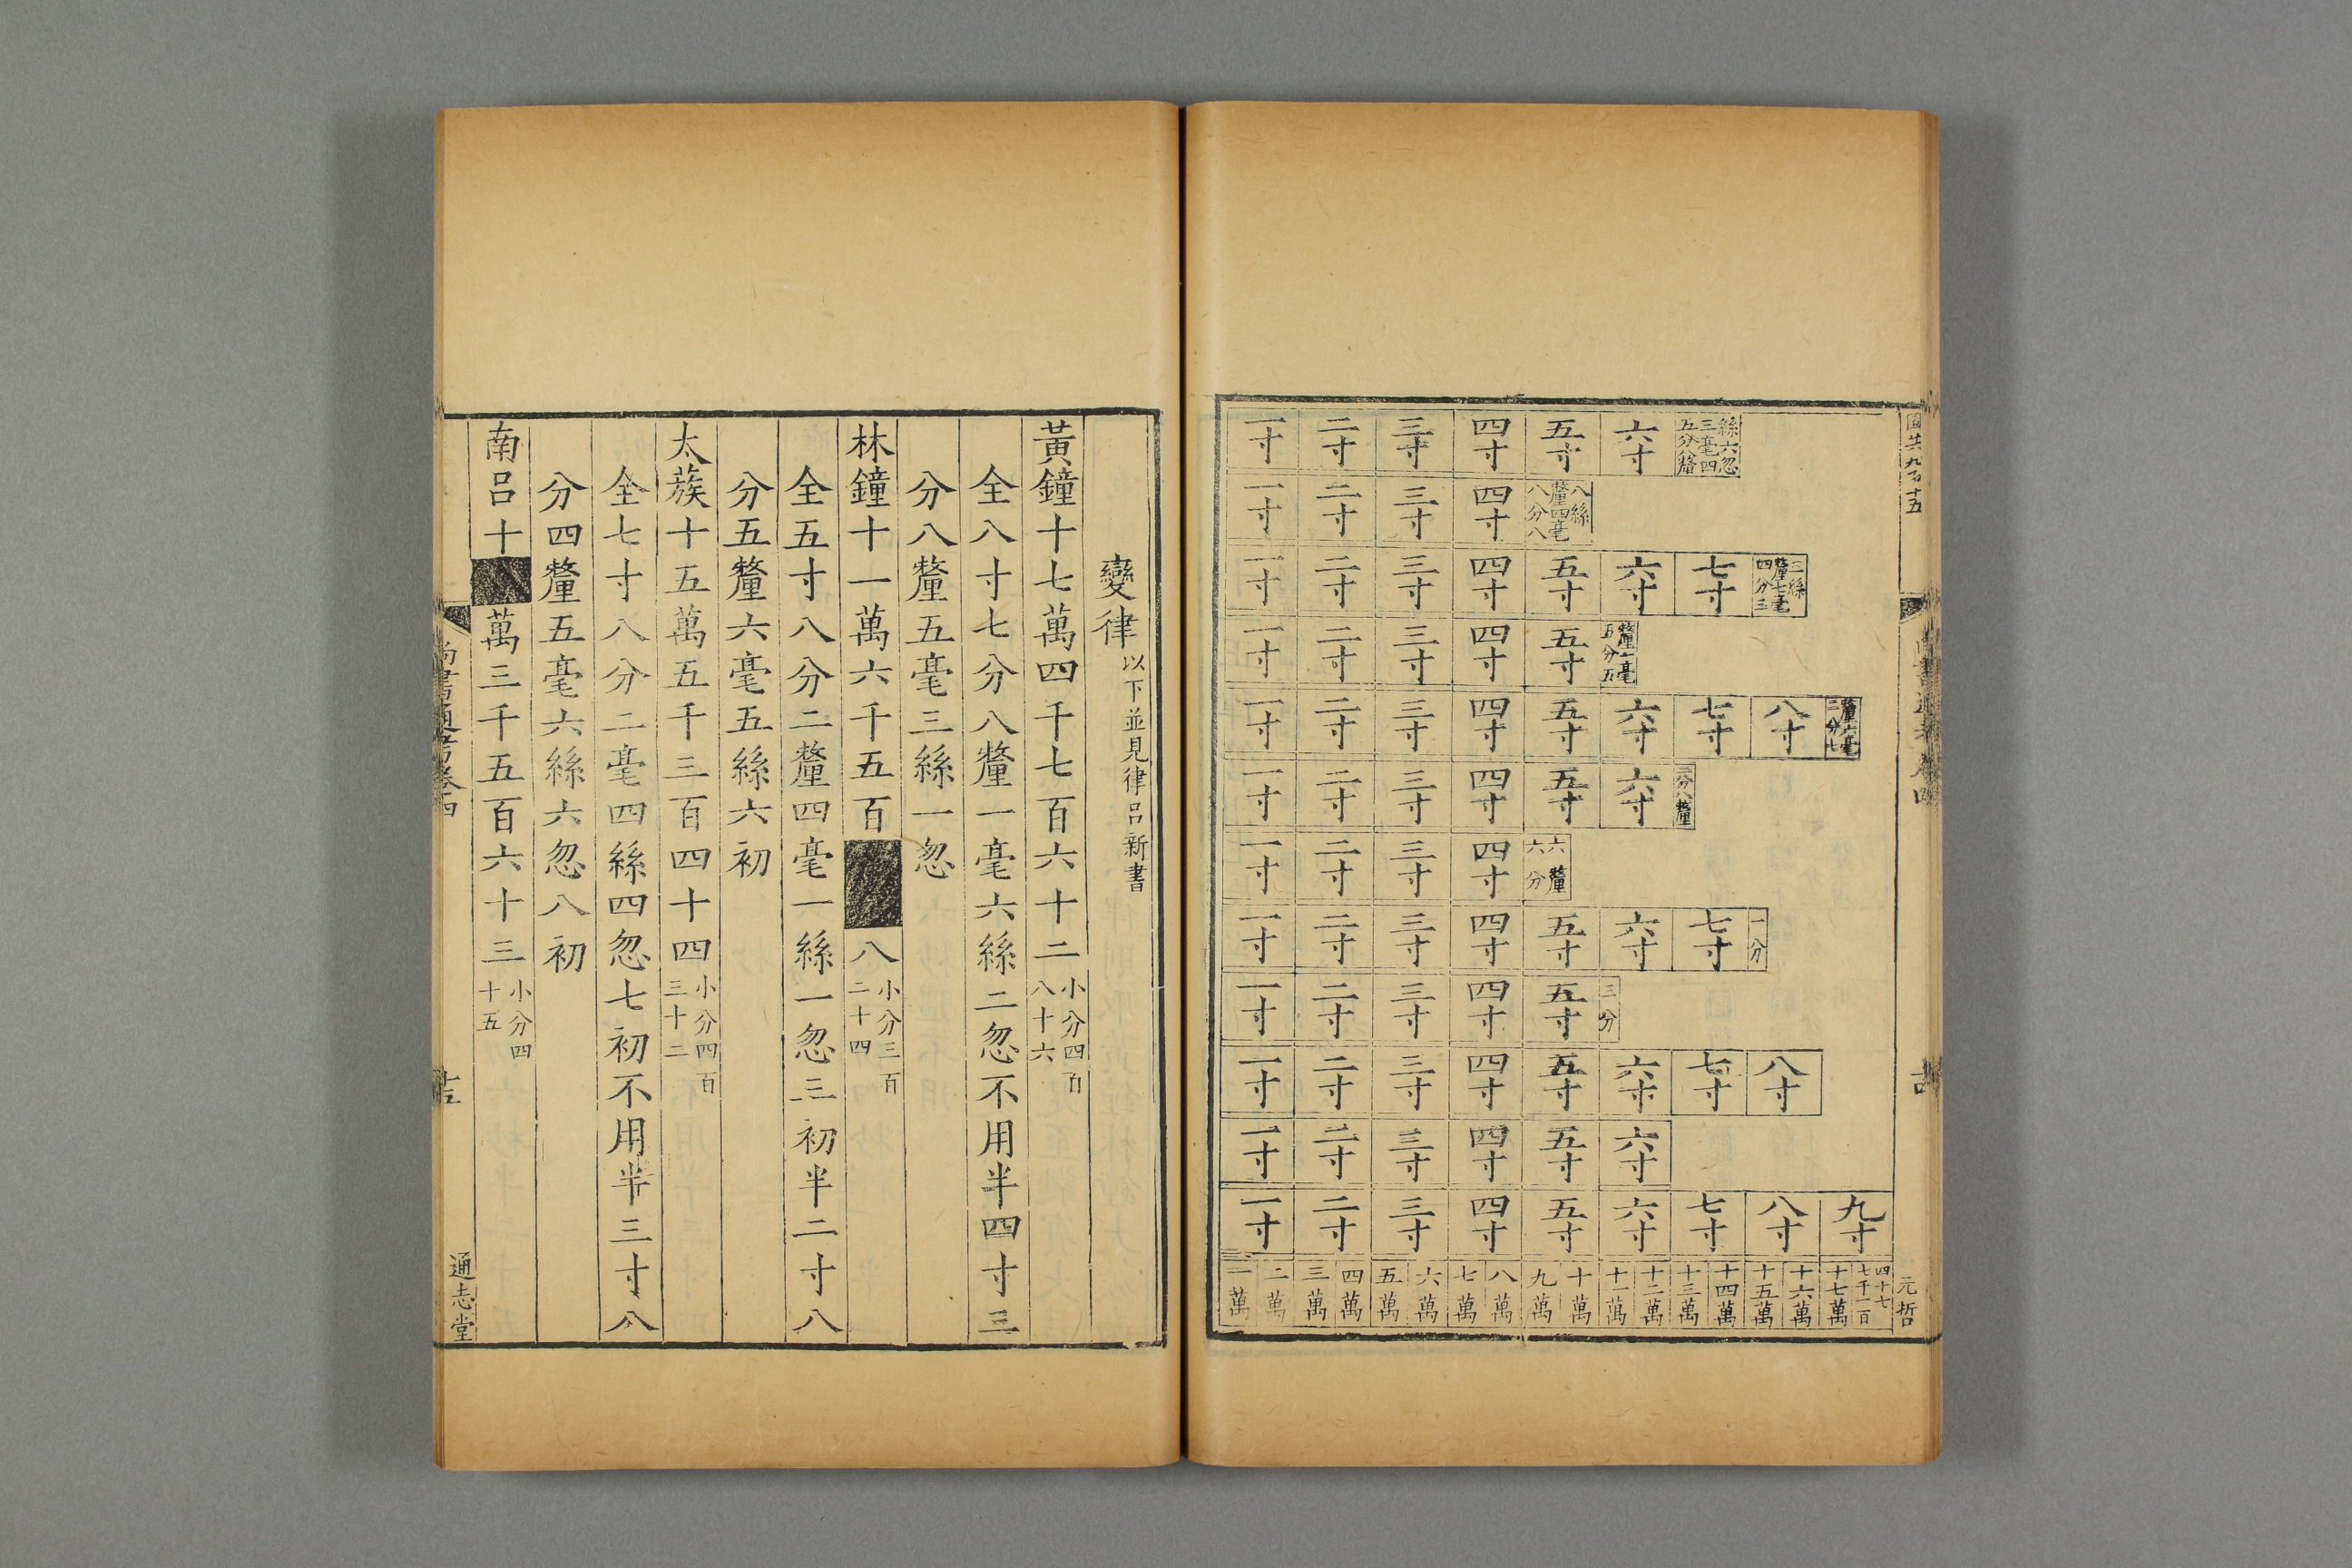 圖共九百十五
元哲
絲六忽
三毫四
五分八釐
六寸
五寸
四寸
三寸
二寸
一寸
八絲
釐四毫
八分八
四寸
三寸
二寸
一寸
三絲
釐七毫
四分三
七寸
六寸
五寸
四寸
三寸
二寸
一寸
釐一毫
五分五
五寸
四寸
三寸
二寸
一寸
釐六毫
二分七
八寸
七寸
六寸
五寸
四寸
三寸
二寸
一寸
二分八釐
六寸
五寸
四寸
三寸
二寸
一寸
六釐
六分
四寸
三寸
二寸
一寸
一分
七寸
六寸
五寸
四寸
三寸
二寸
一寸
三分
五寸
四寸
三寸
二寸
一寸
八寸
七寸
六寸
五寸
四寸
三寸
二寸
一寸
六寸
五寸
四寸
三寸
二寸
一寸
九寸
八寸
七寸
六寸
五寸
四寸
三寸
二寸
一寸
四十七
七千一百
十七萬
十六萬
十五萬
十四萬
十三萬
十二萬
十一萬
十萬
九萬
八萬
七萬
六萬
五萬
四萬
三萬
二萬
一萬
變律以下並見律呂新書
黃鐘十七萬四千七百六十二小分四百八十六
全八寸七分八釐一毫六絲二忽不用半四寸三
分八釐五毫三絲一忽
林鐘十一萬六千五百八小分三百二十四
全五寸八分二釐四毫一絲一忽三初半二寸八
分五釐六毫五絲六初
太蔟十五萬五千三百四十四小分四百三十二
全七寸八分二毫四絲四忽七初不用半三寸八
分四釐五毫六絲六忽八初
南呂十萬三千五百六十三小分四十五
尚書通考卷四
十五
通志堂